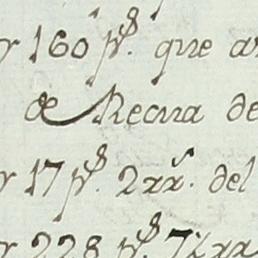 r 160 p.s que an
de Recua de
r 17 p.s 2xx.s del
r 228 p.s 7½xx